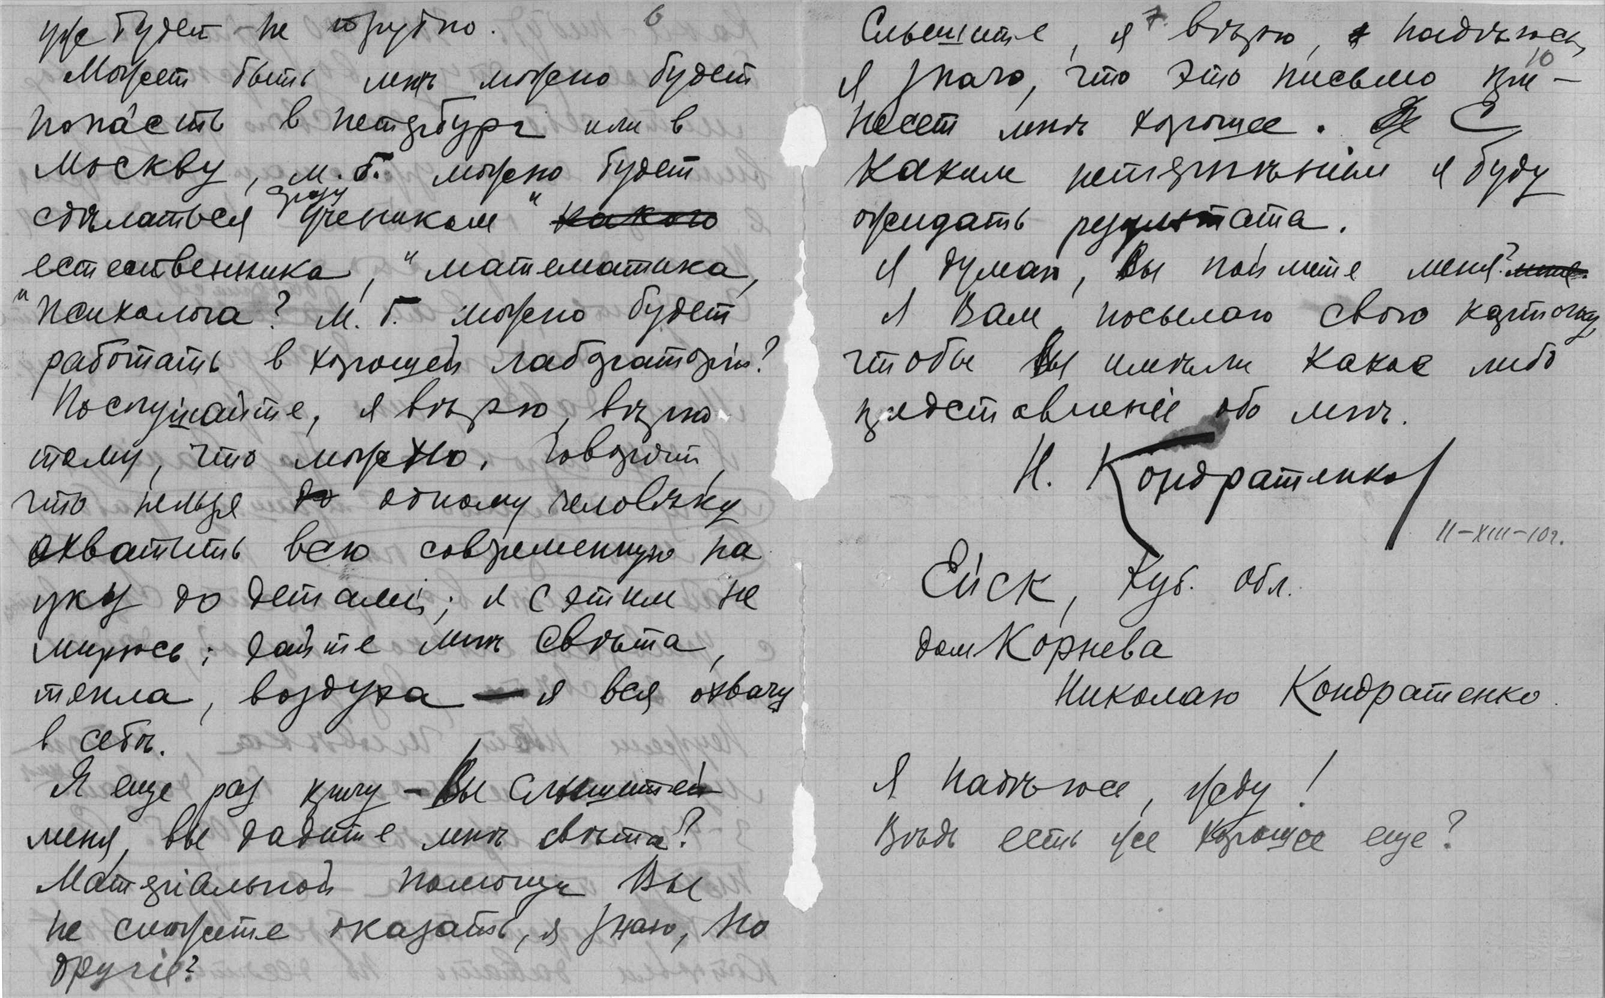 уже будет – не трудно.
6
Может быть мнѣ можно будет
попасть в Петербург или в
Москву, м. б. можно будет
сразу
сдѣлаться учеником "какого
естественника", "математика,
"психолога? М. б. можно будет
работать в хорошей лаборатории?
Послушайте, я вѣрю, вѣрю
тому, что можно. Говорят,
что нельзя до одному человѣку
охватить всю современную на
уку до деталей; я с этим не
мирюсь; дайте мнѣ свѣта,
тепла, воздуха — я вся охвачу
в себѣ.
Я еще раз кричу – Вы слышите
меня, вы дадите мнѣ свѣта?
Матеріальной помощи Вы
не сможете оказать, я знаю, но
другіе?
Слышите, я вѣрю, я надѣюсь,
я знаю, что это письмо при–
несет мнѣ хорошее. С
каким нетерпѣніем я буду
ожидать результата.
Я думаю, Вы поймете меня? мнѣ.
Я Вам посылаю свою карточку,
чтобы Вы имѣли какое либо
представленіе обо мнѣ.
Н. Кондратенко
II–XIII–10г.
Ейск, Куб. обл.
дом Корнева
Николаю Кондратенко.
Я надѣюсь, жду!
Вѣдь есть же хорошее еще?